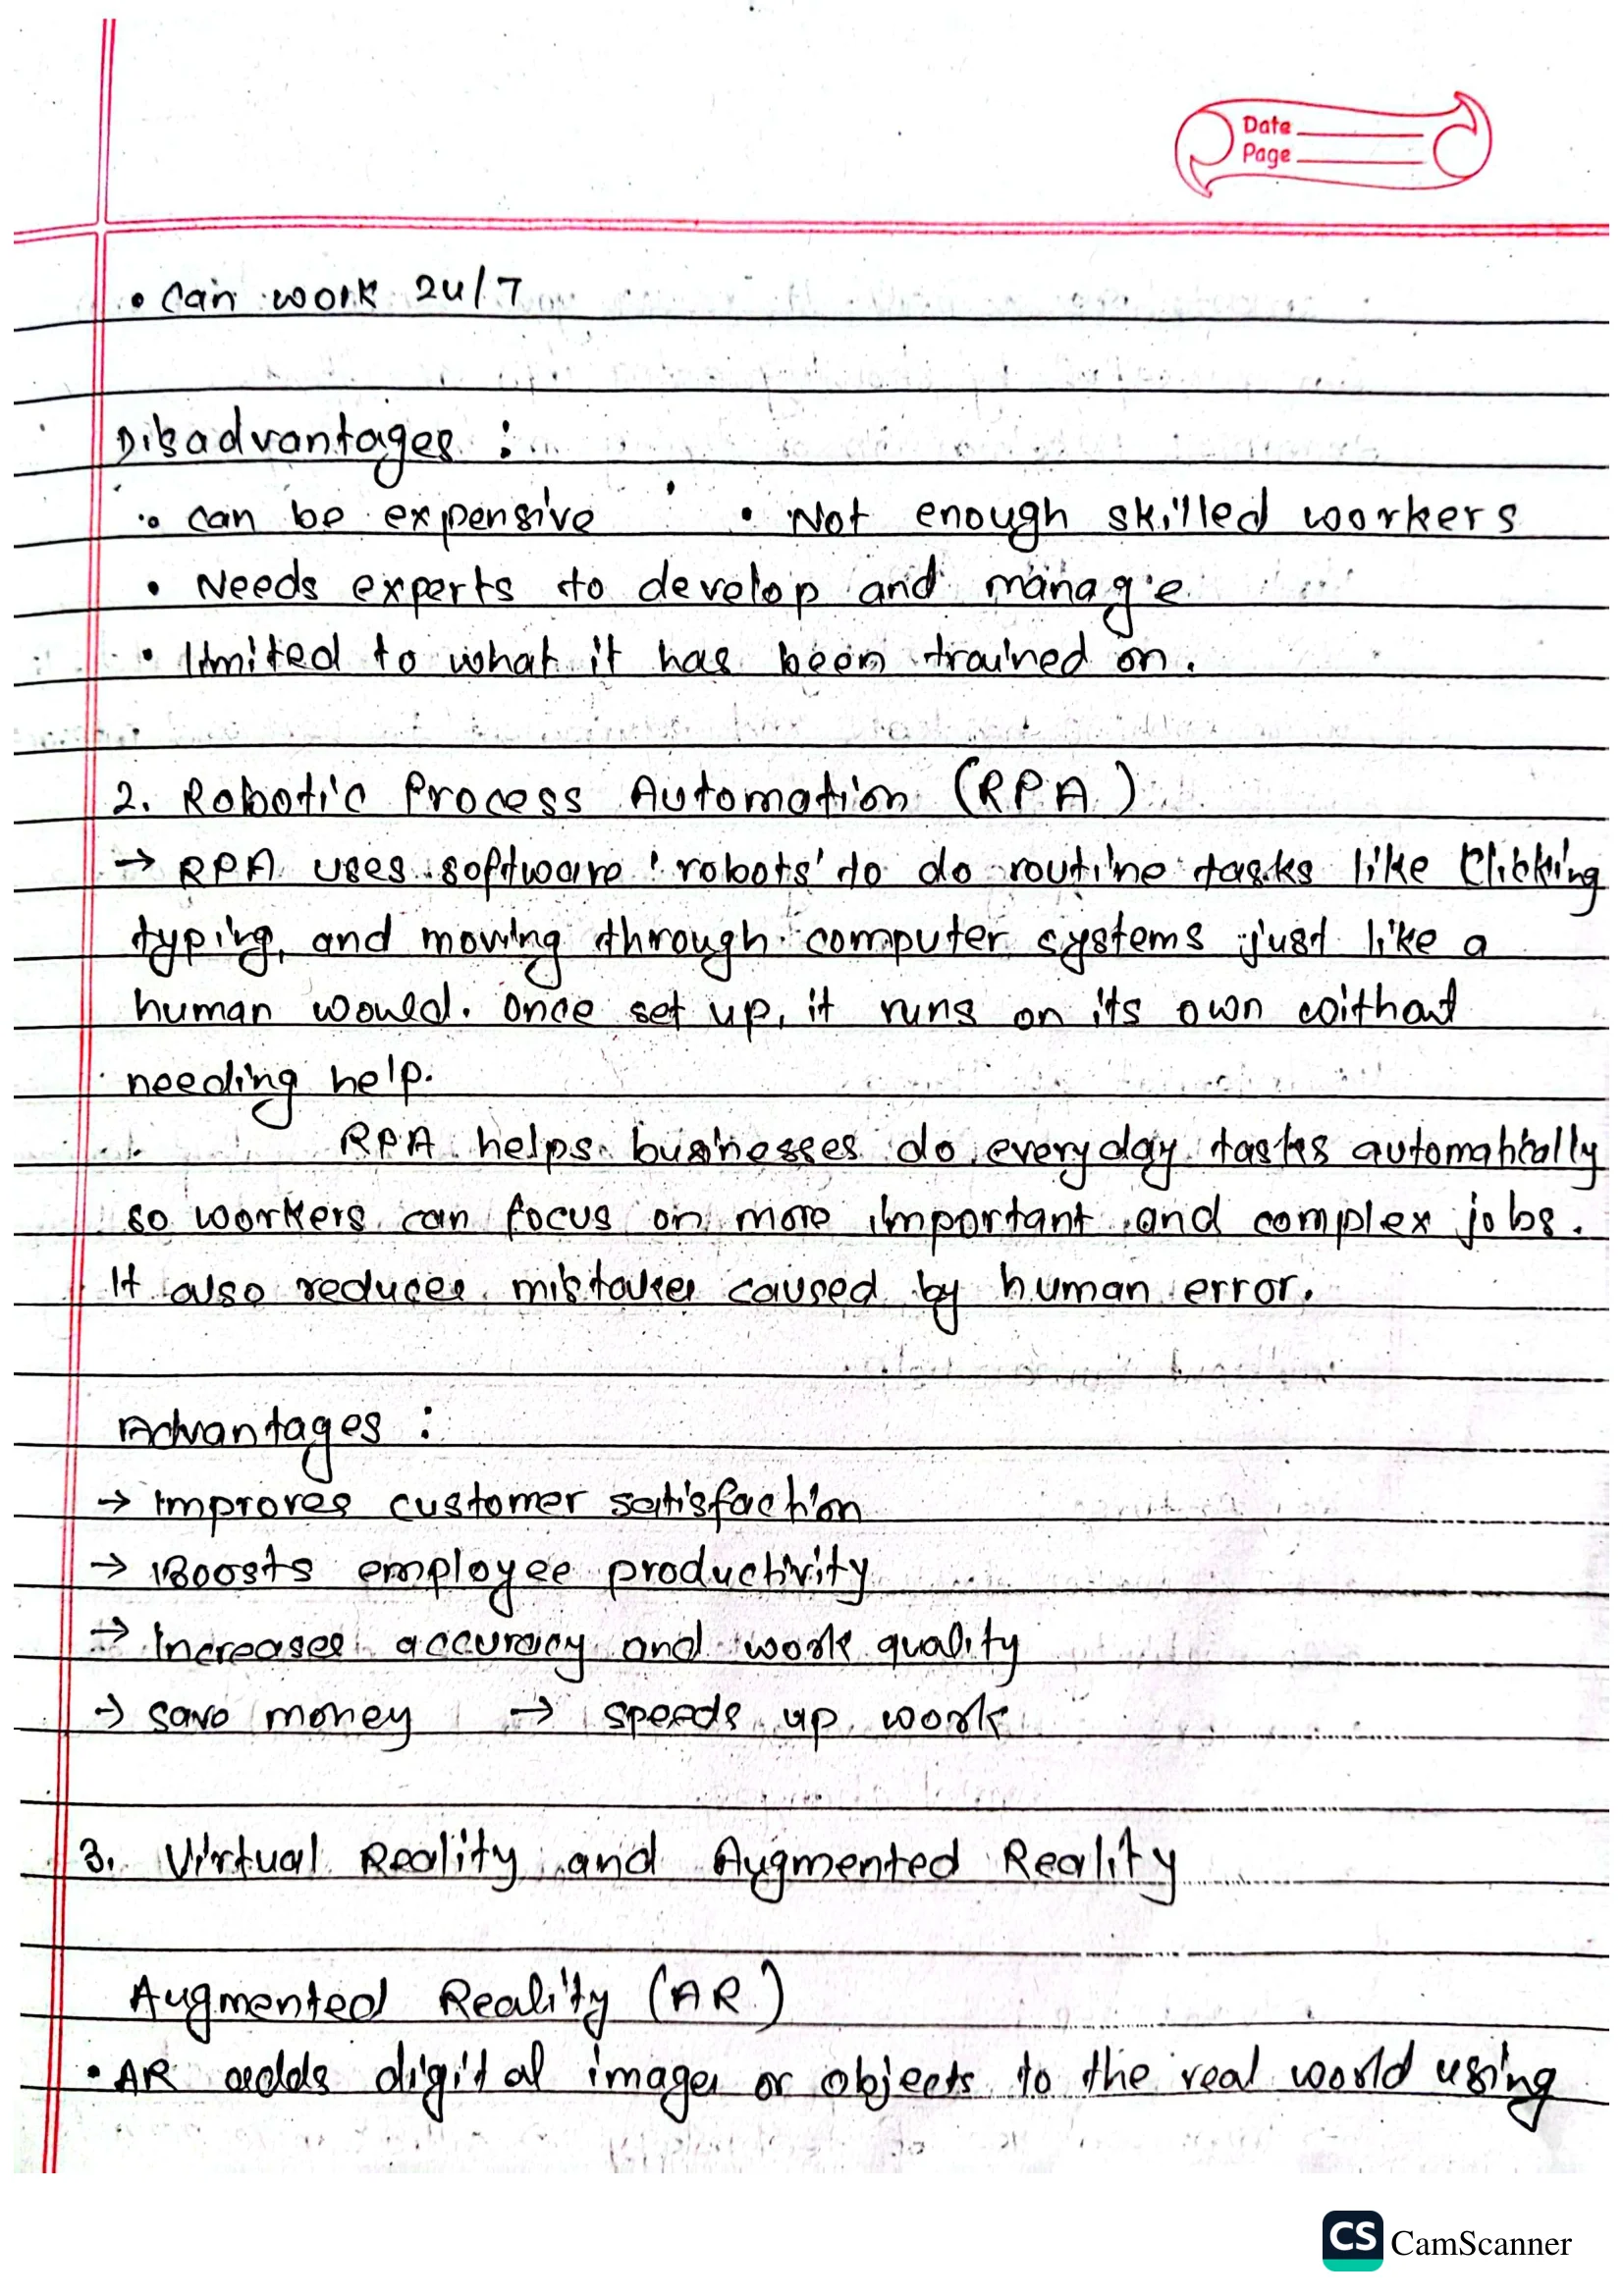 Date
Page
• Can work 24/7
Disadvantages :
• can be expensive • Not enough skilled workers
• Needs experts to develop and manage
• limited to what it has been trained on.
2. Robotic Process Automation (RPA)
→ RPA uses software 'robots' to do routine tasks like Clicking
typing, and moving through computer systems just like a
human would. Once set up, it runs on its own without
needing help.
RPA helps businesses do everyday tasks automatically
so workers can focus on more important and complex jobs.
It also reduces mistakes caused by human error.
Advantages :
→ improves customer satisfaction
→ Boosts employee productivity
→ Increases accuracy and work quality
→ save money → speeds up work
3. Virtual Reality and Augmented Reality
Augmented Reality (AR)
• AR adds digital images or objects to the real world using
CS CamScanner